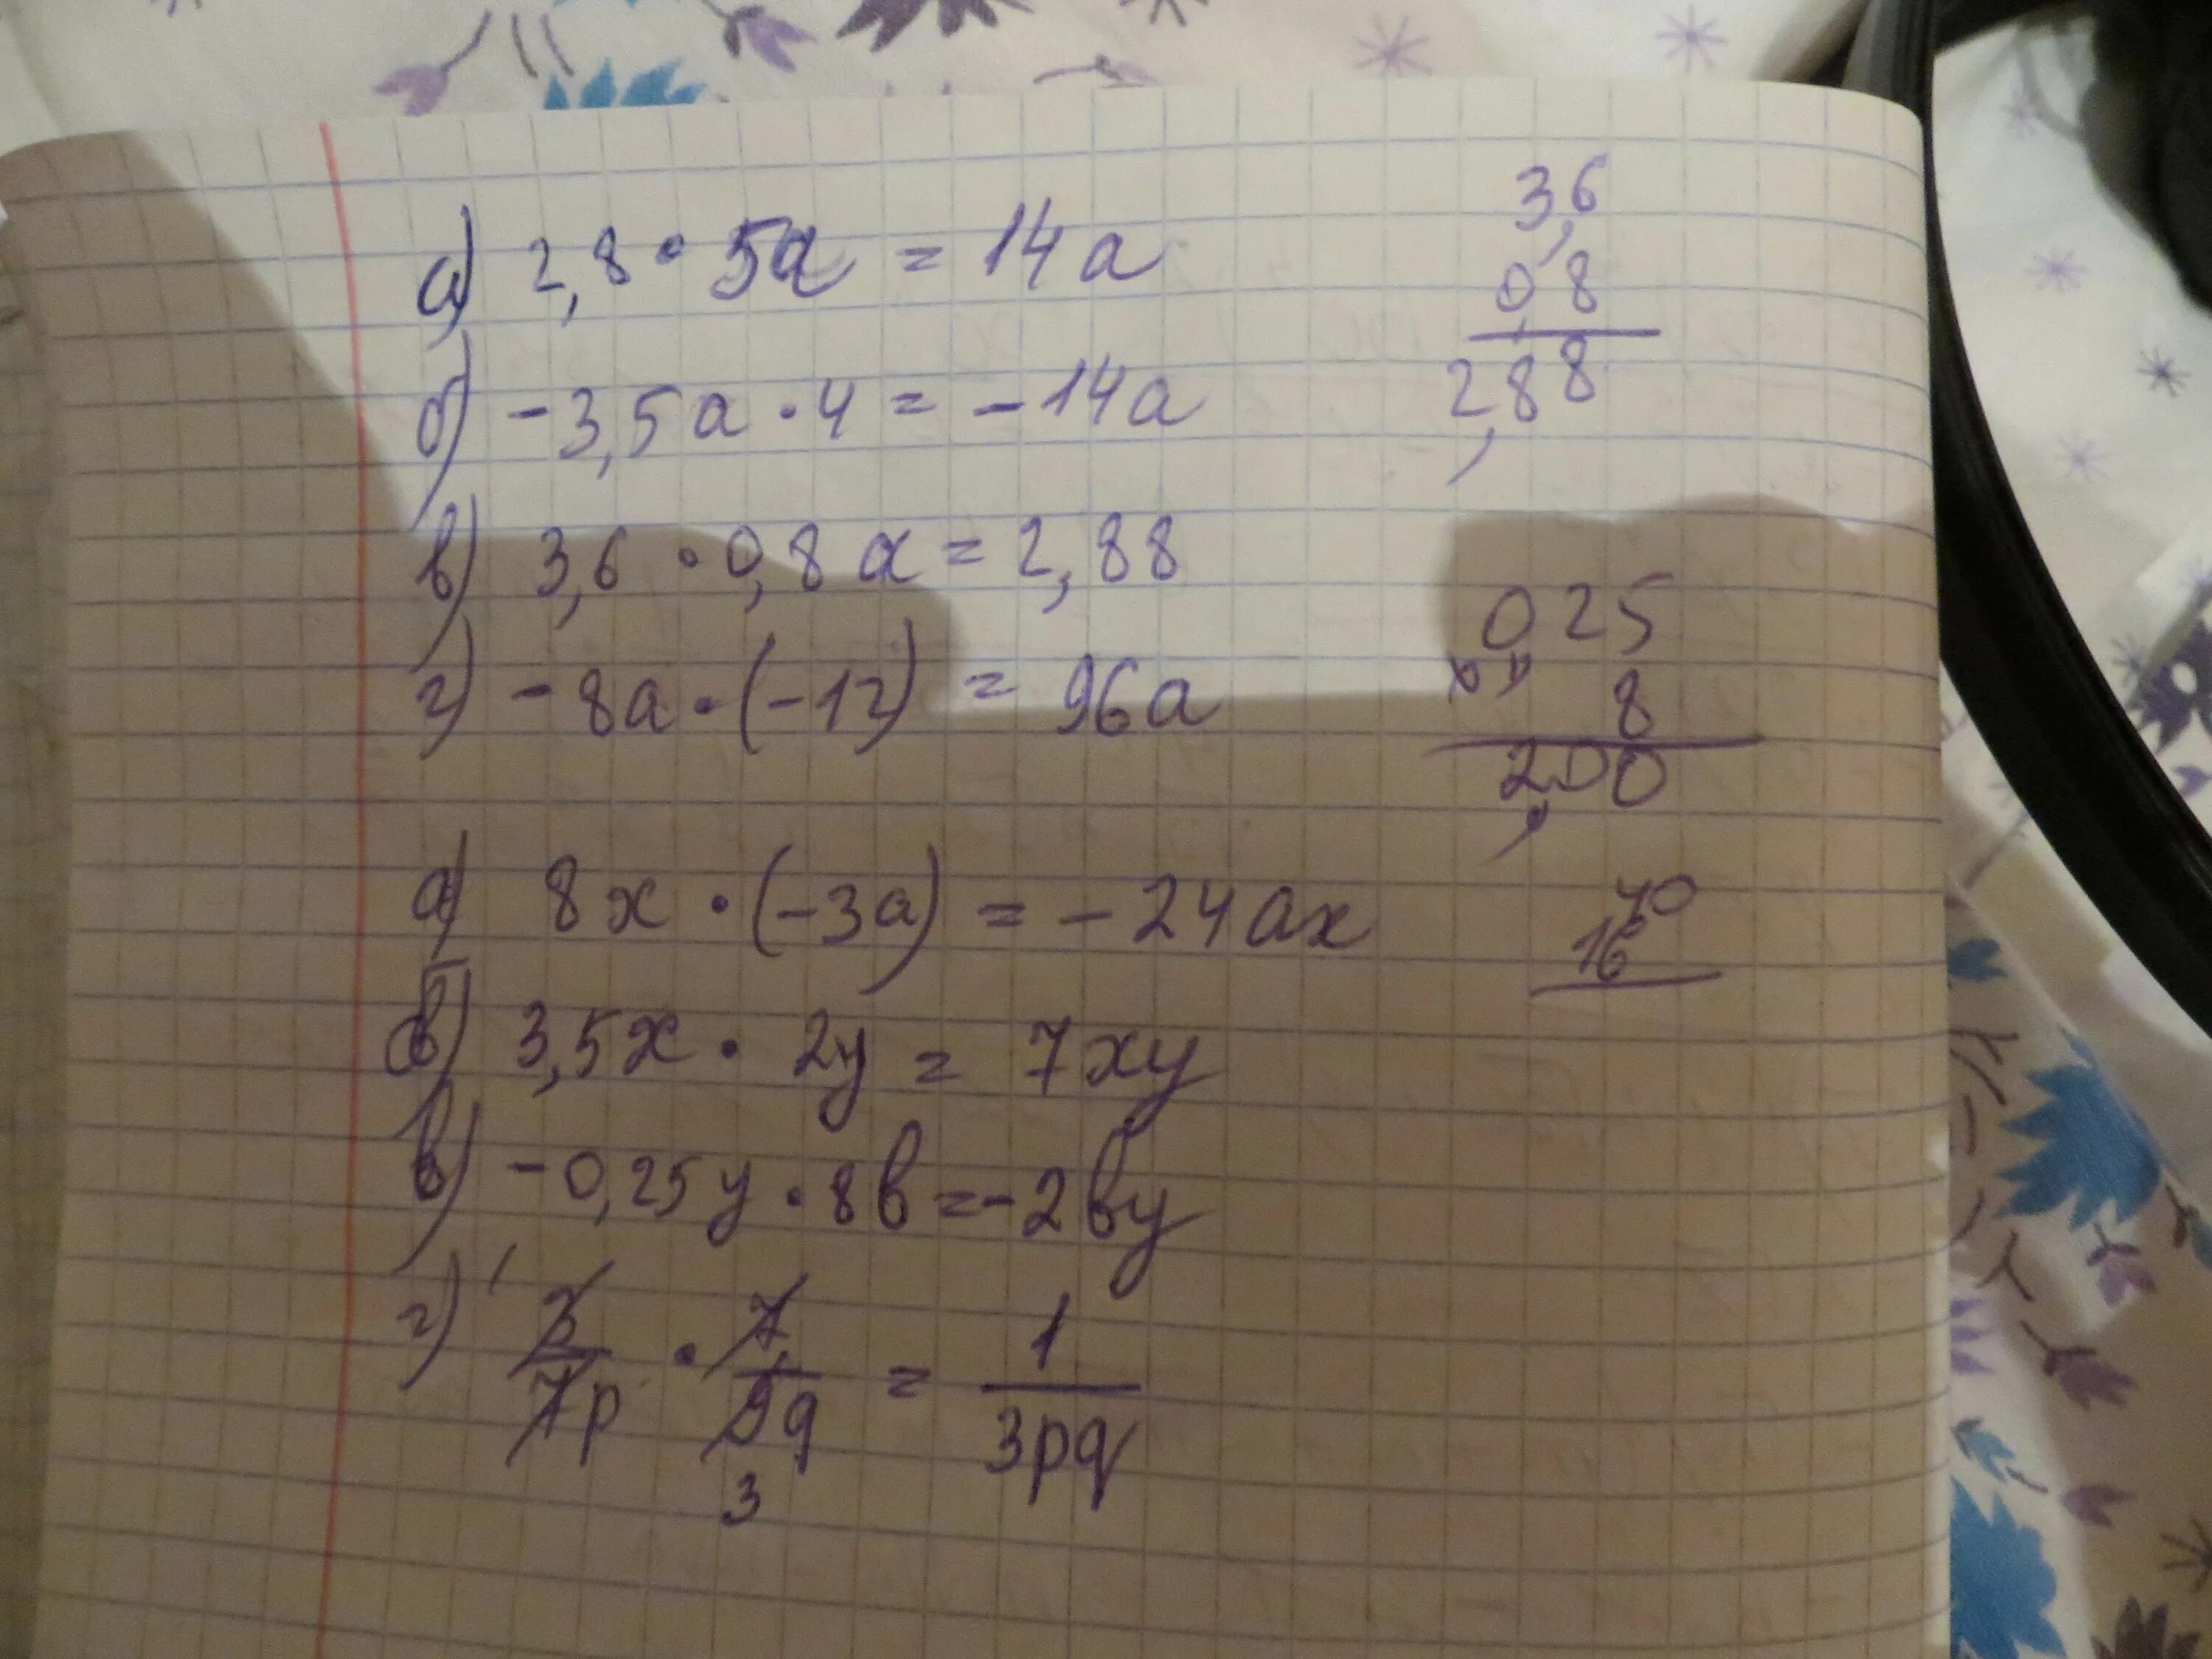 а) 2,8 · 5a = 14a
б) -3,5a · 4 = -14a
в) 3,6 · 0,8a = 2,88
г) -8a · (-12) = 96a
а) 8x · (-3a) = -24ax
б) 3,5x · 2y = 7xy
в) -0,25y · 8b = -2by
г) 3/7p · 7/9q = 1/3pq
3
3,6
0,8
2,88
0,25
8
2,00
40
16